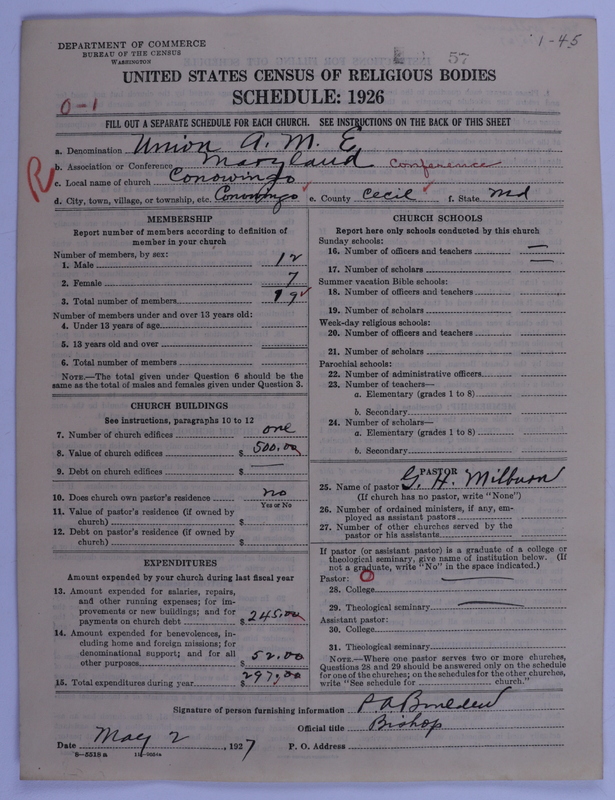 DEPARTMENT OF COMMERCE
BUREAU OF THE CENSUS
WASHINGTON
57
1-45
UNITED STATES CENSUS OF RELIGIOUS BODIES
SCHEDULE: 1926
0-1
FILL OUT A SEPARATE SCHEDULE FOR EACH CHURCH. SEE INSTRUCTIONS ON THE BACK OF THIS SHEET
R
a. Denomination Union A. M. E.
b. Association or Conference Maryland Conference
c. Local name of church Conowingo
d. City, town, village, or township, etc. Conowingo e. County Cecil f. State Md
MEMBERSHIP
Report number of members according to definition of
member in your church
Number of members, by sex:
1. Male 12
2. Female 7
3. Total number of members 19
Number of members under and over 13 years old:
4. Under 13 years of age
5. 13 years old and over
6. Total number of members
NOTE.—The total given under Question 6 should be the
same as the total of males and females given under Question 3.
CHURCH BUILDINGS
See instructions, paragraphs 10 to 12
7. Number of church edifices one
8. Value of church edifices $ 500.00
9. Debt on church edifices $ —
10. Does church own pastor's residence no
Yes or No
11. Value of pastor's residence (if owned by
church) $
12. Debt on pastor's residence (if owned by
church) $
EXPENDITURES
Amount expended by your church during last fiscal year
13. Amount expended for salaries, repairs,
and other running expenses; for im-
provements or new buildings; and for
payments on church debt $ 245.00
14. Amount expended for benevolences, in-
cluding home and foreign missions; for
denominational support; and for all
other purposes 52.00
15. Total expenditures during year $ 297.00
CHURCH SCHOOLS
Report here only schools conducted by this church
Sunday schools:
16. Number of officers and teachers —
17. Number of scholars —
Summer vacation Bible schools:
18. Number of officers and teachers
19. Number of scholars
Week-day religious schools:
20. Number of officers and teachers
21. Number of scholars
Parochial schools:
22. Number of administrative officers
23. Number of teachers—
a. Elementary (grades 1 to 8)
b. Secondary
24. Number of scholars—
a. Elementary (grades 1 to 8)
b. Secondary
PASTOR
25. Name of pastor G. H. Milburn
(If church has no pastor, write "None")
26. Number of ordained ministers, if any, em-
ployed as assistant pastors
27. Number of other churches served by the
pastor or his assistants
If pastor (or assistant pastor) is a graduate of a college or
theological seminary, give name of institution below. (If
not a graduate, write "No" in the space indicated.)
Pastor: 0
28. College —
29. Theological seminary —
Assistant pastor:
30. College
31. Theological seminary
NOTE.—Where one pastor serves two or more churches,
Questions 28 and 29 should be answered only on the schedule
for one of the churches; on the schedules for the other churches,
write "See schedule for church."
Signature of person furnishing information P A
Official title Bishop
Date May 2, 1927 P. O. Address
8-5518 a